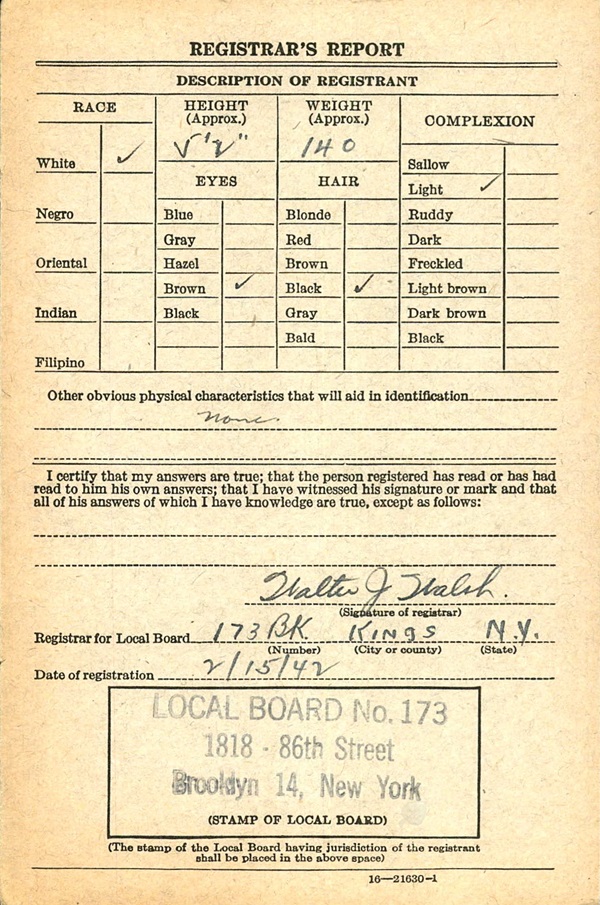 REGISTRAR'S REPORT
DESCRIPTION OF REGISTRANT
RACE
HEIGHT
(Approx.)
WEIGHT
(Approx.)
COMPLEXION
White ✓
5'2"
140
Sallow
Light ✓
EYES
HAIR
Negro
Blue
Blonde
Ruddy
Gray
Red
Dark
Oriental
Hazel
Brown
Freckled
Brown ✓
Black ✓
Light brown
Indian
Black
Gray
Dark brown
Bald
Black
Filipino
Other obvious physical characteristics that will aid in identification
None.
I certify that my answers are true; that the person registered has read or has had
read to him his own answers; that I have witnessed his signature or mark and that
all of his answers of which I have knowledge are true, except as follows:
Walter J Walsh.
(Signature of registrar)
Registrar for Local Board 173 BK. KINGS N.Y.
(Number) (City or county) (State)
Date of registration 2/15/42
LOCAL BOARD No. 173
1818 - 86th Street
Brooklyn 14, New York
(STAMP OF LOCAL BOARD)
(The stamp of the Local Board having jurisdiction of the registrant
shall be placed in the above space)
16—21630-1